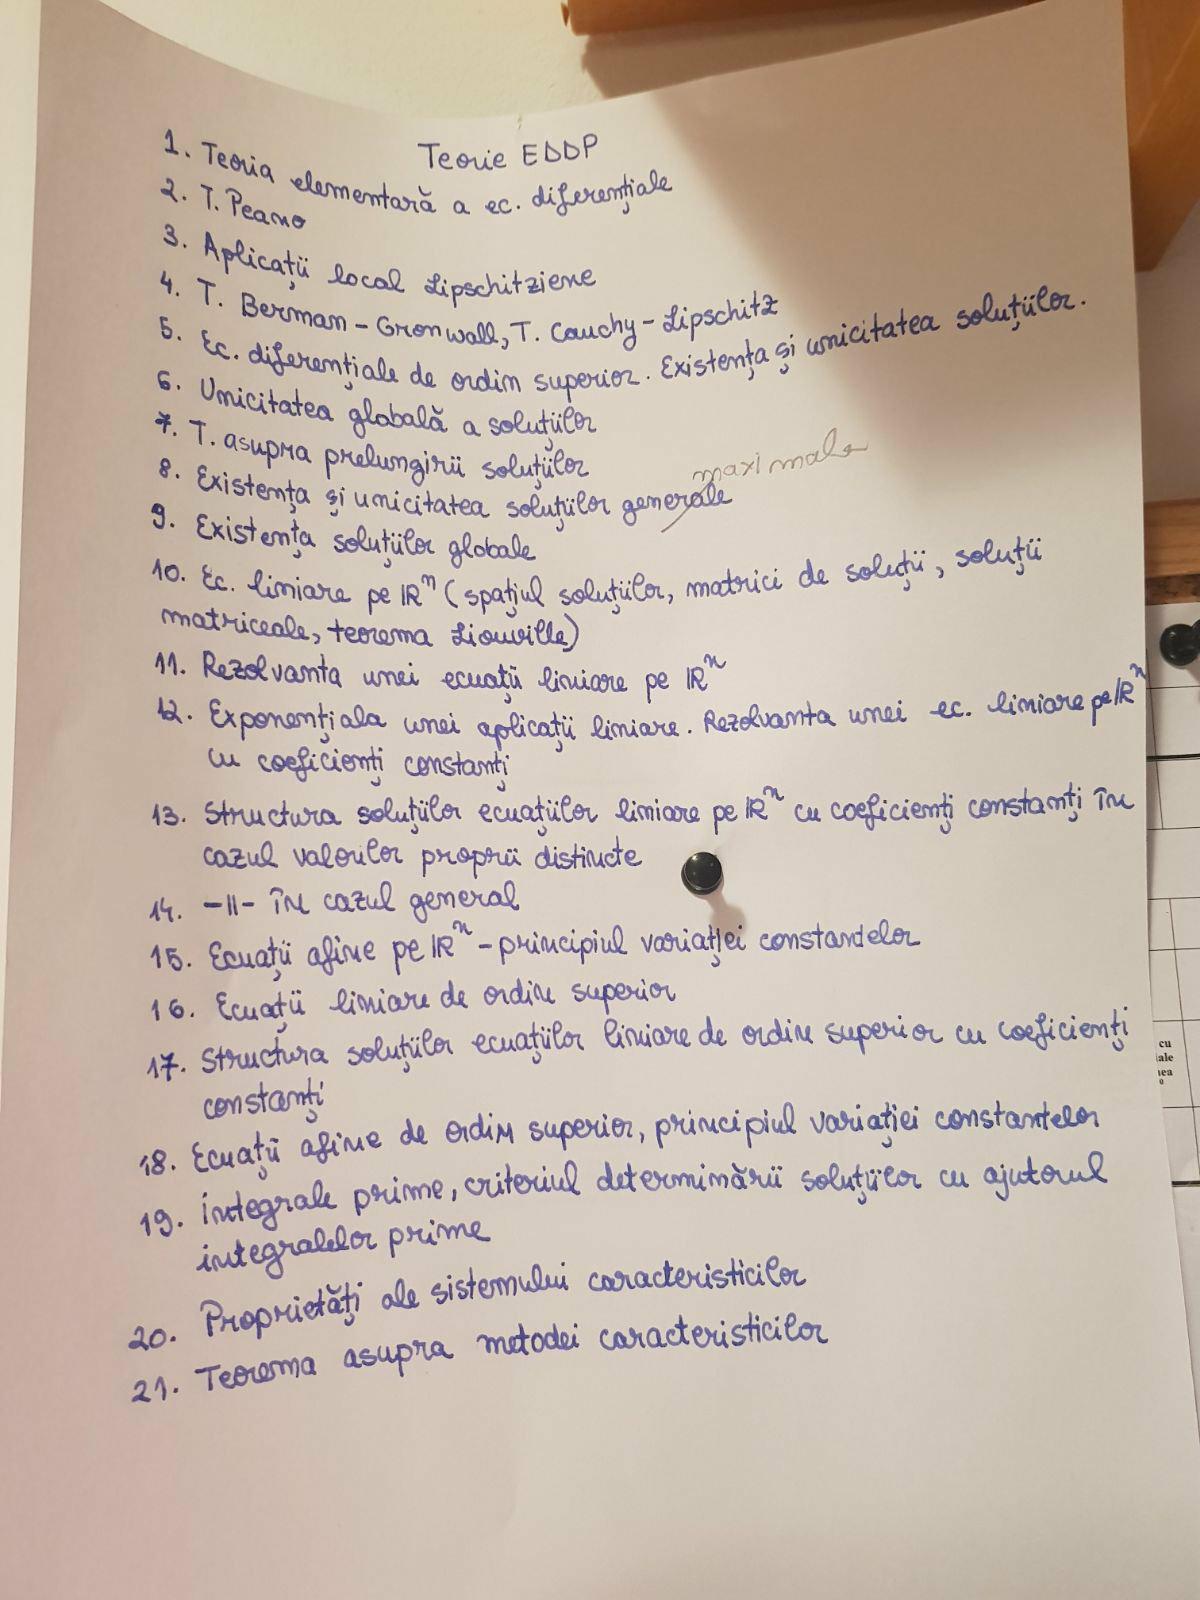 Teorie EDDP
1. Teoria elementară a ec. diferențiale
2. T. Peano
3. Aplicații local Lipschitziene
4. T. Berman-Gronwall, T. Cauchy-Lipschitz
5. Ec. diferențiale de ordin superior. Existența și unicitatea soluțiilor.
6. Unicitatea globală a soluțiilor
7. T. asupra prelungirii soluțiilor
maximale
8. Existența și unicitatea soluțiilor generale
9. Existența soluțiilor globale
10. Ec. liniare pe ℝⁿ (spațiul soluțiilor, matrici de soluții, soluții
matriceale, teorema Liouville)
11. Rezolvanta unei ecuații liniare pe ℝⁿ
12. Exponențiala unei aplicații liniare. Rezolvanta unei ec. liniare pe ℝⁿ
cu coeficienți constanți
13. Structura soluțiilor ecuațiilor liniare pe ℝⁿ cu coeficienți constanți în
cazul valorilor proprii distincte
14. -||- în cazul general
15. Ecuații afine pe ℝⁿ - principiul variației constantelor
16. Ecuații liniare de ordin superior
17. Structura soluțiilor ecuațiilor liniare de ordin superior cu coeficienți
constanți
18. Ecuații afine de ordin superior, principiul variației constantelor
19. Integrale prime, criteriul determinării soluțiilor cu ajutorul
integralelor prime
20. Proprietăți ale sistemului caracteristicilor
21. Teorema asupra metodei caracteristicilor
cu